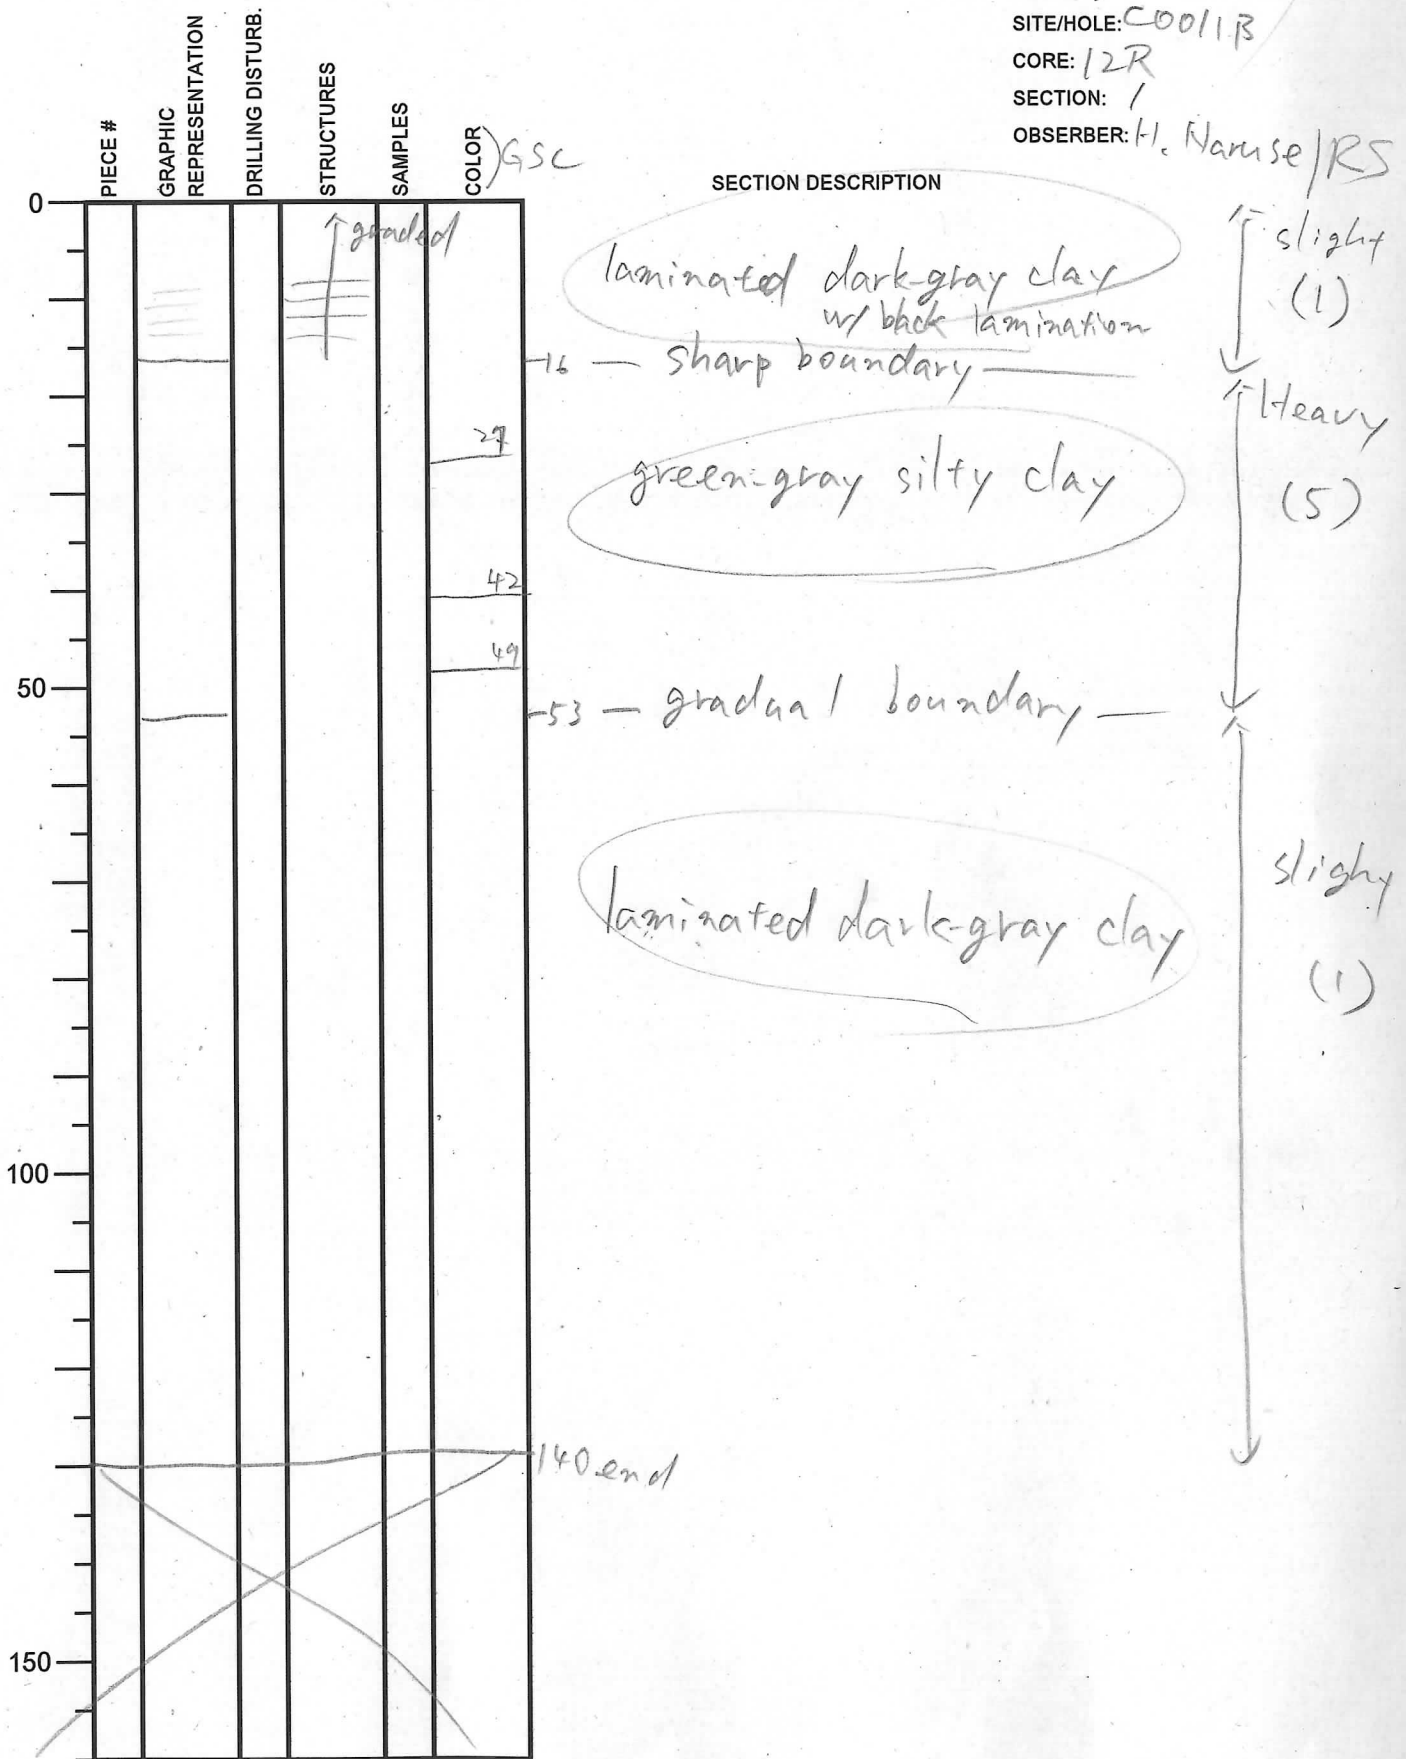 SITE/HOLE: C0011B
CORE: 12R
SECTION: 1
OBSERBER: H. Naruse/RS
PIECE #
GRAPHIC REPRESENTATION
DRILLING DISTURB.
STRUCTURES
SAMPLES
COLOR) GSC
SECTION DESCRIPTION
0
graded
slight
(1)
laminated dark-gray clay
w/ back lamination
16 — sharp boundary
Heavy
(5)
green-gray silty clay
42
49
50
53 — gradual boundary —
slighy
(1)
laminated dark-gray clay
100
140 end
150